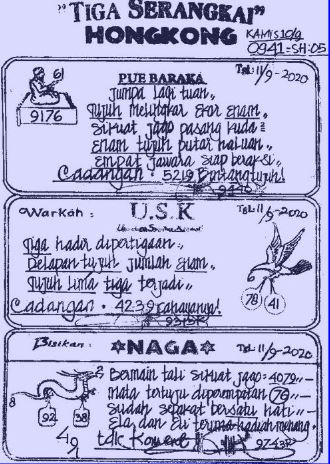 "TIGA SERANGKAI"
HONGKONG
KAMIS 10/9
0941=SH:05
PUE BARAKA
Tgl: 11/9-2020
Jumpa lagi tuan,,
Tujuh melingkar ekor enam,,
Sikuat jago pasang kuda²
Enam tujuh putar haluan,,
Empat jawara siap beraksi,,
Cadangan • 5219 Bintang tujuh!
9176
9446
Warkah :
U.S.K
Tgl: 11/9-2020
Tiga hadir dipertigaan,,
Delapan tujuh jumlah enam,,
Tujuh lima tiga terjadi,,
Cadangan • 4239 cahayanya!
78 41
Bisikan :
NAGA
Tgl: 11/9-2020
Bermain tali sikuat jago = 4079,,-
Mata tertuju diperempatan 79,,-
Sudah sepakat bersatu hati,,-
Ela dan Eli terima hadiah menang.
8
92 38
49